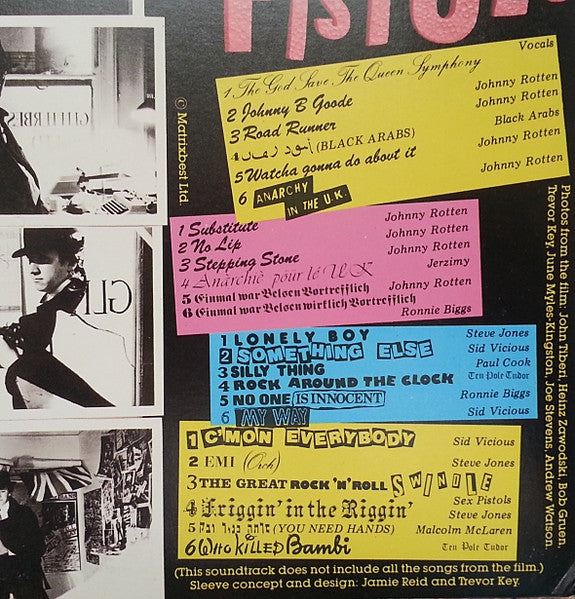 PISTOLS
Vocals
1 The God Save The Queen Symphony
2 Johnny B Goode Johnny Rotten
3 Road Runner Johnny Rotten
4 (BLACK ARABS) Black Arabs
5 Watcha gonna do about it Johnny Rotten
6 ANARCHY IN THE U.K. Johnny Rotten
1 Substitute Johnny Rotten
2 No Lip Johnny Rotten
3 Stepping Stone Johnny Rotten
4 Anarchie pour le UK Jerzimy
5 Einmal war Belsen Vortrefflich Johnny Rotten
6 Einmal war Belsen wirklich Vortrefflich Ronnie Biggs
1 LONELY BOY Steve Jones
2 SOMETHING ELSE Sid Vicious
3 SILLY THING Paul Cook
4 ROCK AROUND THE CLOCK Ten Pole Tudor
5 NO ONE IS INNOCENT Ronnie Biggs
6 MY WAY Sid Vicious
1 C'MON EVERYBODY Sid Vicious
2 EMI (Orch) Steve Jones
3 THE GREAT ROCK 'N' ROLL SWINDLE Sex Pistols
4 Friggin' in the Riggin' Steve Jones
5 (YOU NEED HANDS) Malcolm McLaren
6 WHO KILLED Bambi Ten Pole Tudor
(This soundtrack does not include all the songs from the film.)
Sleeve concept and design: Jamie Reid and Trevor Key.
© Matrixbest Ltd.
Photos from the film: John Tiberi, Heinz Zawodski, Bob Gruen,
Trevor Key, June Myles-Kingston, Joe Stevens, Andrew Watson.